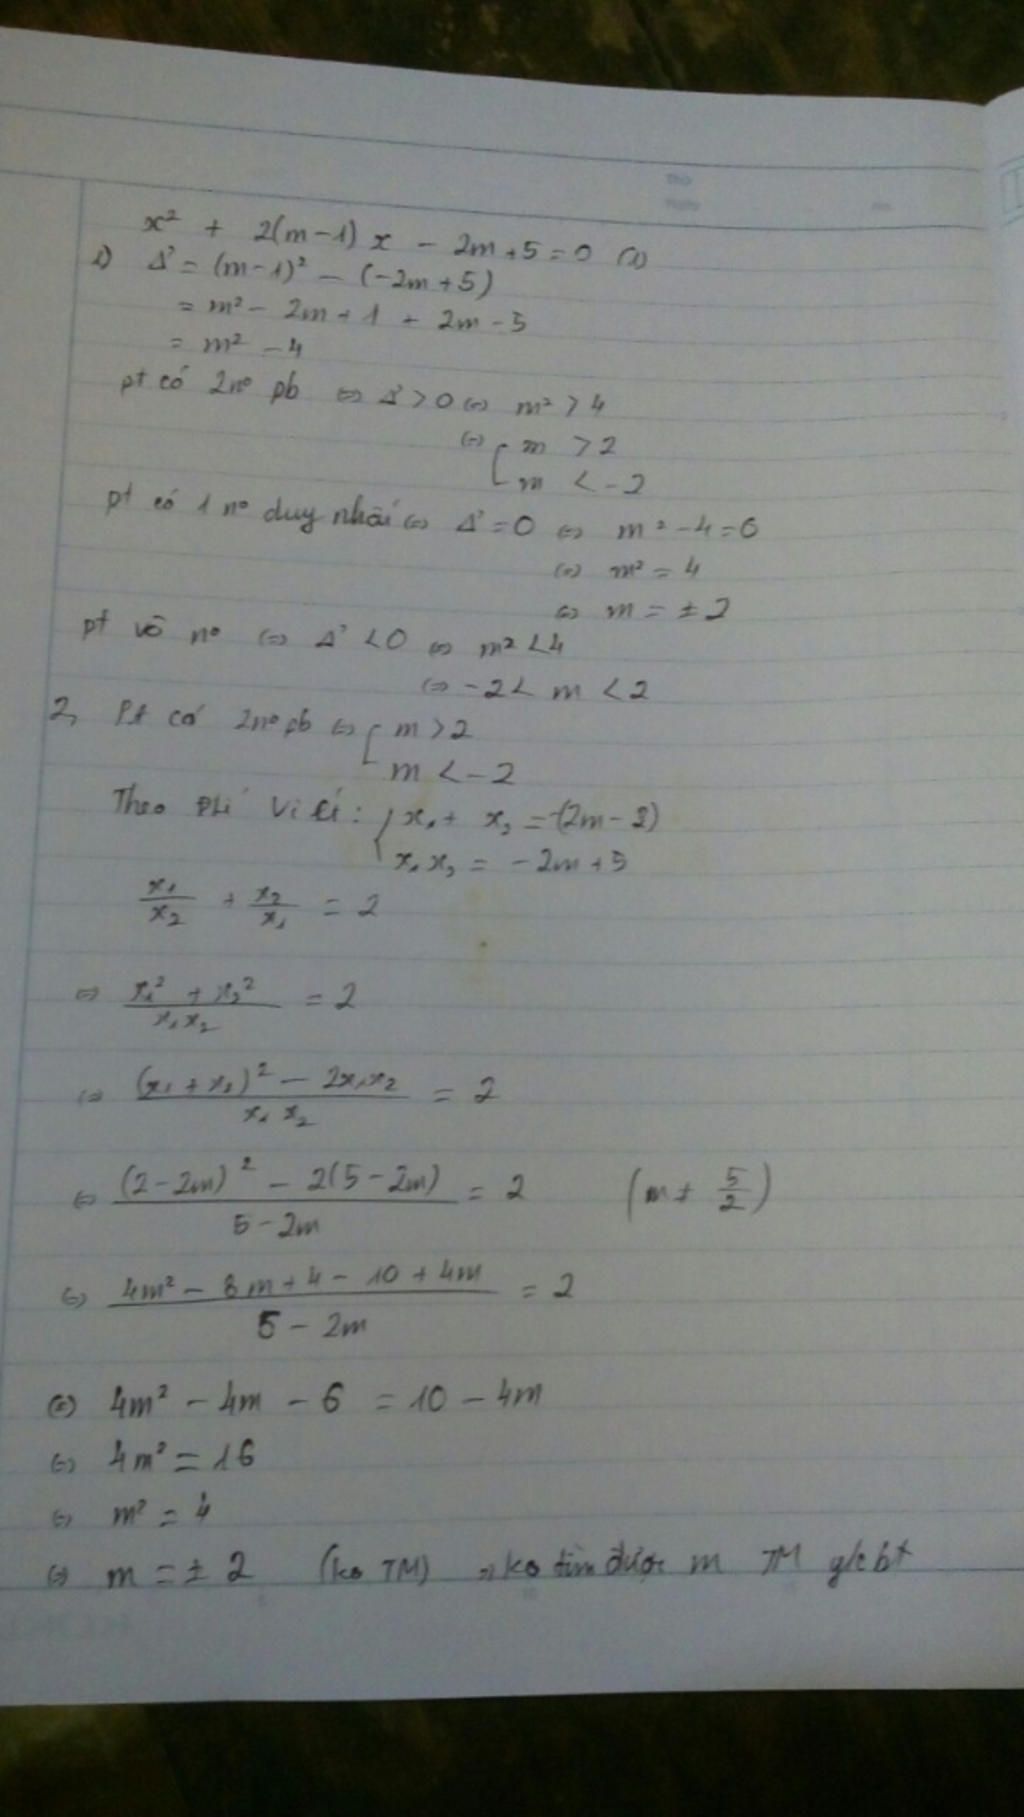 x² + 2(m-1)x - 2m+5=0 (1)
1) Δ' = (m-1)² - (-2m+5)
= m² - 2m + 1 + 2m - 5
= m² - 4
pt có 2n° pb ⇔ Δ' > 0 ⇔ m² > 4
⇔ [ m > 2
m < -2
pt có 1 n° duy nhất ⇔ Δ' = 0 ⇔ m² - 4 = 0
⇔ m² = 4
⇔ m = ± 2
pt vô n° ⇔ Δ' < 0 ⇔ m² < 4
⇔ -2 < m < 2
2, Pt có 2n° pb ⇔ [ m > 2
m < -2
Theo Viét: { x₁ + x₂ = -(2m-2)
x₁x₂ = -2m+5
x₁/x₂ + x₂/x₁ = 2
⇔ (x₁² + x₂²)/(x₁x₂) = 2
⇔ ((x₁ + x₂)² - 2x₁x₂)/(x₁x₂) = 2
⇔ ((2-2m)² - 2(5-2m))/(5-2m) = 2 (m ≠ 5/2)
⇔ (4m² - 8m + 4 - 10 + 4m)/(5-2m) = 2
⇔ 4m² - 4m - 6 = 10 - 4m
⇔ 4m² = 16
⇔ m² = 4
⇔ m = ± 2 (ko TM) ⇒ ko tìm được m TM đk bt